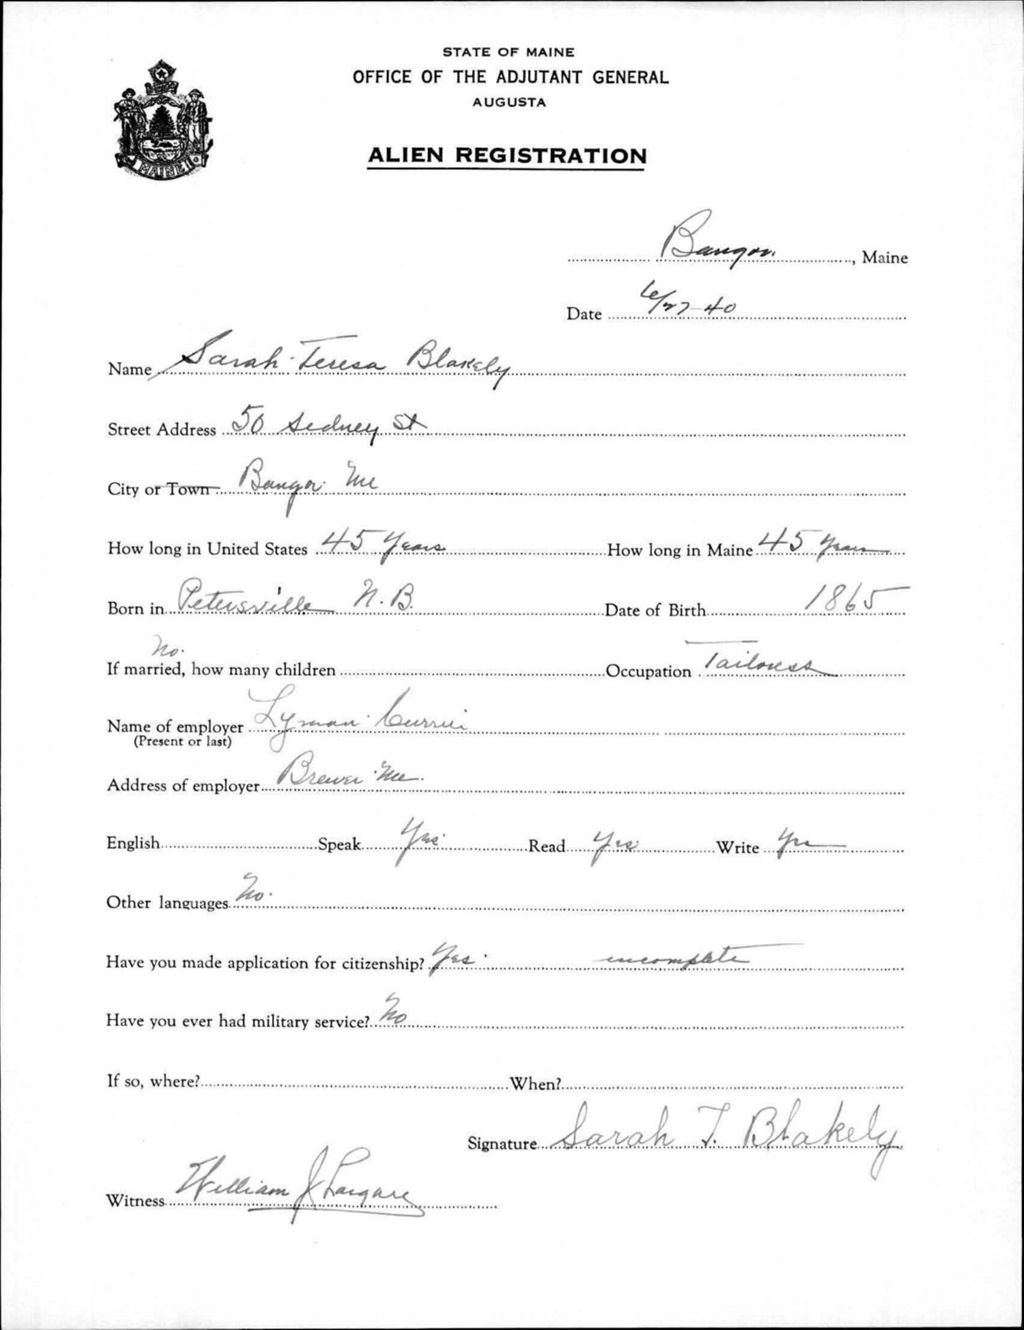 STATE OF MAINE
OFFICE OF THE ADJUTANT GENERAL
AUGUSTA
ALIEN REGISTRATION
MAINE
Bangor, Maine
Date 6/27-40
Name Sarah Teresa Blakely
Street Address 50 Sedney St
City or Town Bangor Me
How long in United States 45 Years How long in Maine 45 Years
Born in Petersville N.B. Date of Birth 1865
No.
If married, how many children Occupation Tailoress
Name of employer Lyman Currie
(Present or last)
Address of employer Brewer Me.
English Speak Yes Read Yes Write Yes
Other languages No.
Have you made application for citizenship? Yes incomplete
Have you ever had military service? No
If so, where? When?
Signature Sarah T. Blakely
Witness William J